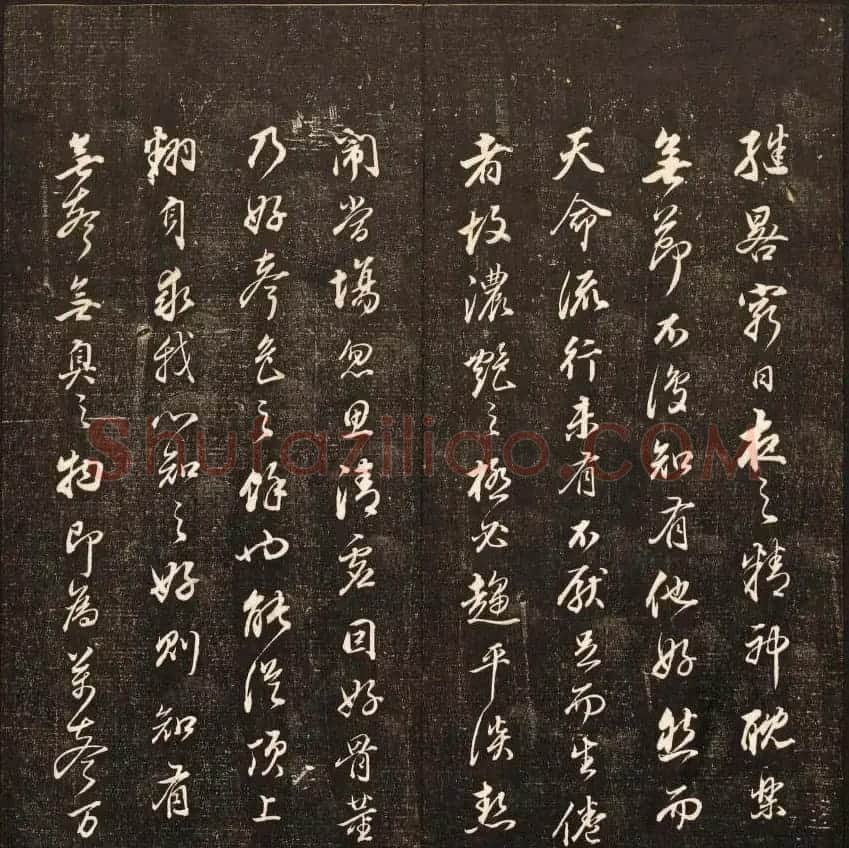 繼晷窮日夜之精神耽樂
無節不復知有他好然而
天命流行未有不厭足而生倦
者故濃艷之極必趨平淡熱
鬧當場忽思清虛因好骨董
乃好聲色之餘也能從頂上
翻身求我心知之好則知有
無聲無臭之物即為萬聲万
Shufaziliao.COM